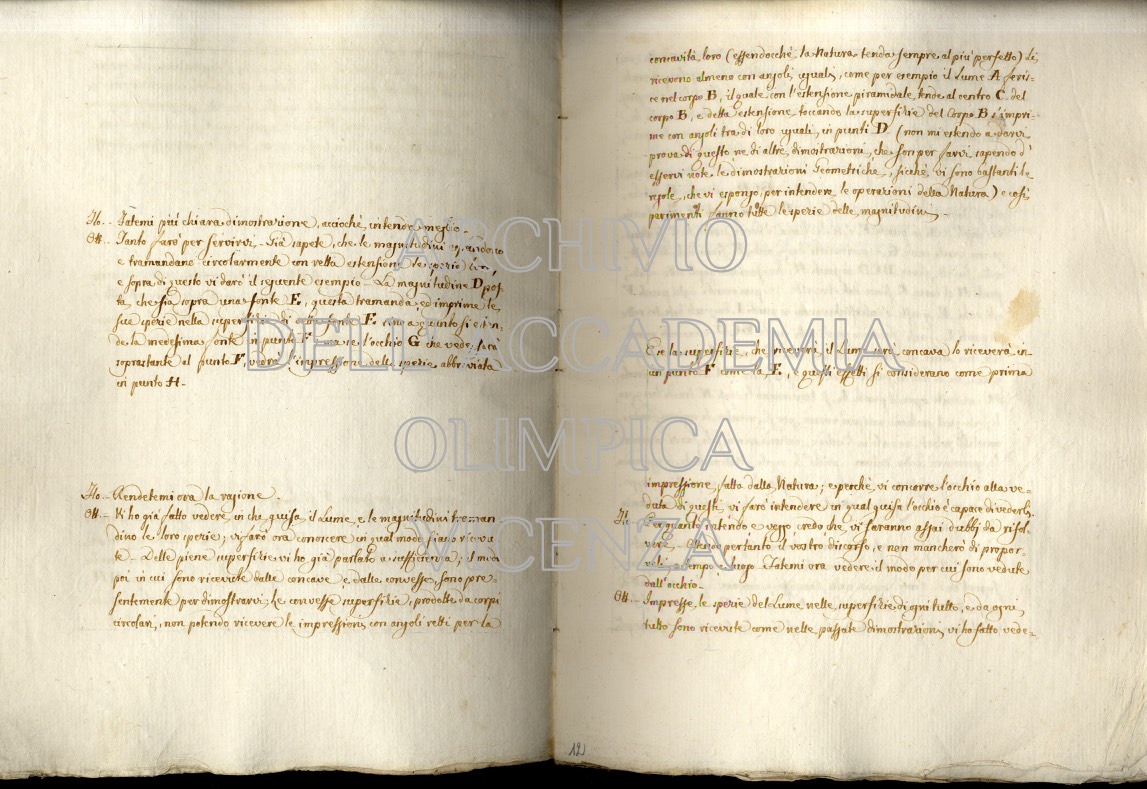 Ho. Fatemi più chiara dimostrazione, acciochè intender meglio.
Tanto farò per servirvi. Già sapete, che le magnitudini espandono
e tramandano circolarmente con retta estensione le sperie loro,
e sopra di questo vi darò il seguente esempio. La magnitudine D pos-
ta, che sia sopra una fonte E, questa tramanda, ed imprime le
sue sperie nella superfizie di essa fonte E, sino a quanto si esten-
de la medesima fonte in punto F ove l'occhio G che vede, sarà
soprastante al punto F vedrà l'impressione della sperie abbreviata
in punto H.
Ho. Rendetemi ora la ragione.
Vi ho già fatto vedere in che guisa il Lume, e le magnitudini traman-
dino le loro sperie; vi farò ora conoscere in qual modo siano ricevu-
te. Delle piene superfizie vi ho già parlato a sufficienza; il modo
poi in cui sono ricevute dalle concave e dalle convesse, sono pre-
sentemente per dimostrarvi. Le convesse superfizie, prodotte da corpi
circolari, non potendo ricevere le impressioni con angoli retti per la
concavità loro (essendocchè la Natura tenda sempre al più perfetto) li
ricevono almeno con angoli uguali, come per esempio il Lume A feris-
ce nel corpo B, il quale con l'estensione piramidale tende al centro C del
corpo B, e detta estensione toccando la superfizie del Corpo B s'impri-
me con angoli tra di loro uguali in punti D (non mi estendo a darvi
prova di questo, ne di altre dimostrazioni, che son per farvi sapendo d'
esservi note le dimostrazioni Geometriche, sicchè vi sono bastanti le
regole, che vi espongo, per intendere le operazioni della Natura) e così
parimenti fanno tutte le sperie delle magnitudini.
E se la superfizie, che riceverà il Lume sarà concava lo riceverà in
un punto F come la E, e questi effetti si considerano come prima
impressione fatta dalla Natura; e perchè vi concorre l'occhio alla ve-
duta di questi, vi farò intendere in qual guisa l'occhio è capace di vederli.
Per quanto intendo e veggo, credo che vi saranno assai dubbj da risol-
vere. pertanto il vostro discorso, e non mancherò di propor-
veli a tempo, e luogo. Fatemi ora vedere il modo per cui sono vedute
dall'occhio.
Impresse le sperie del Lume nelle superfizie di ogni tutto, e da ogni
tutto sono ricevute come nelle passate dimostrazioni vi ho fatto vede-
12
ARCHIVIO
DELL'ACCADEMIA
OLIMPICA
VICENZA